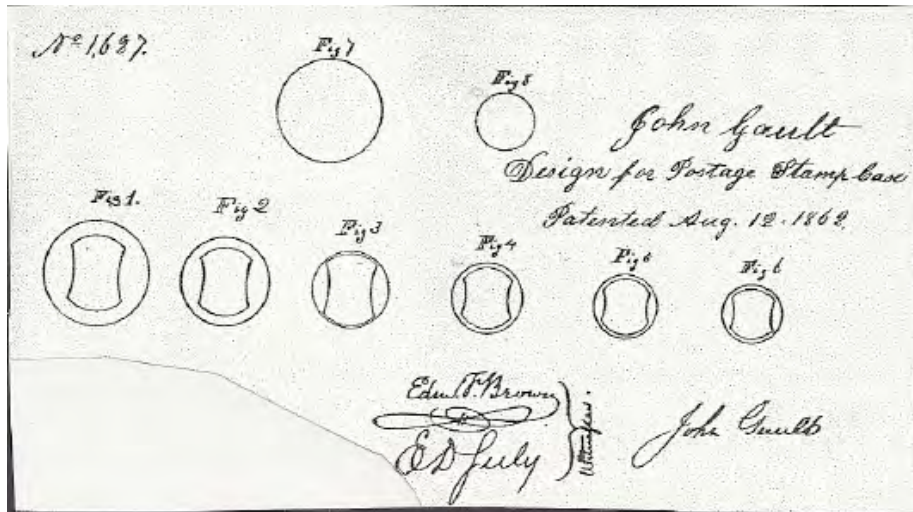 Nº 1,687.
Fig 7
Fig 8
John Gault
Design for Postage Stamp Case
Patented Aug. 12. 1862.
Fig 1.
Fig 2
Fig 3
Fig 4
Fig 6
Fig 6
Edm. F. Brown
E D July
Witnesses.
John Gault